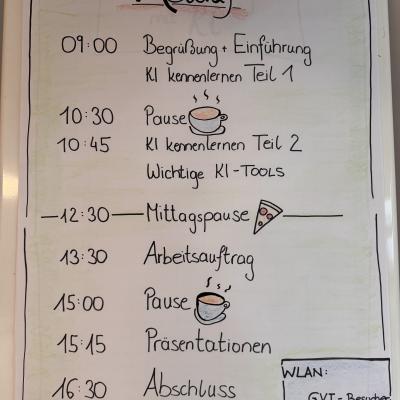 09:00 Begrüßung + Einführung
KI kennenlernen Teil 1
10:30 Pause
10:45 KI kennenlernen Teil 2
Wichtige KI-TOOLS
12:30 Mittagspause
13:30 Arbeitsauftrag
15:00 Pause
15:15 Präsentationen
16:30 Abschluss
WLAN:
GVI-Besucher